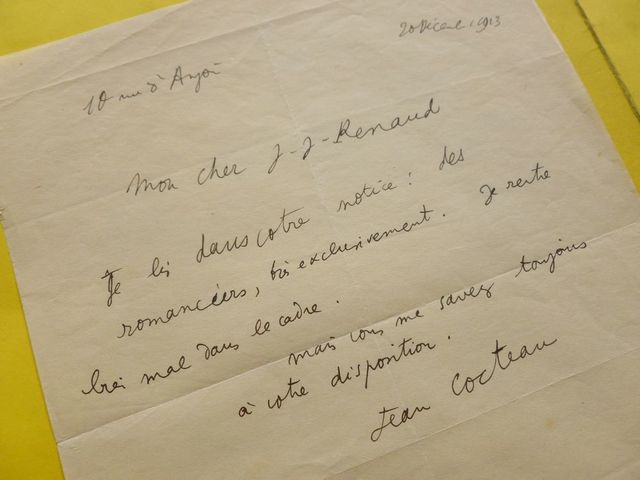 20 Décem. 1913
10 rue d'Anjou
Mon cher J-J-Renaud
Je lis dans votre notice : des
romanciers, très exclusivement. Je rentre
très mal dans le cadre.
mais vous me savez toujours
à votre disposition.
Jean Cocteau